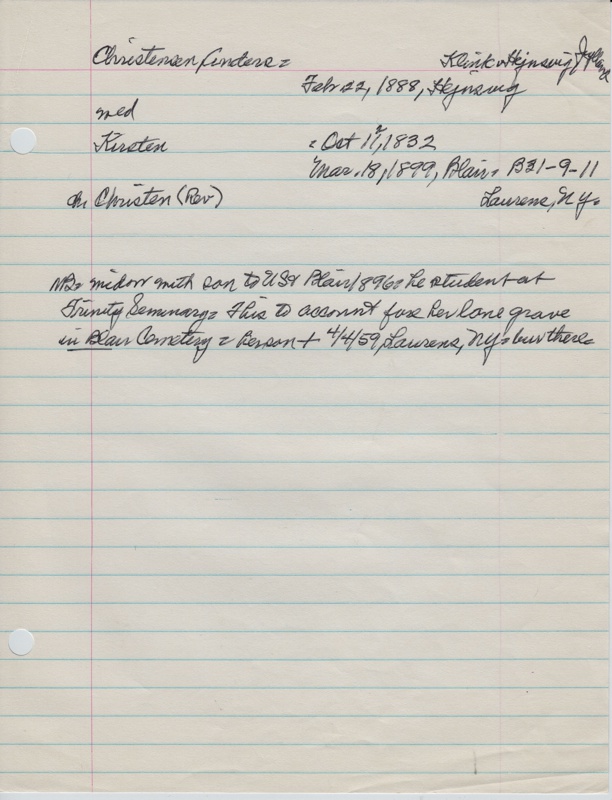 Christensen Anders = Klink Hejnsvig Jylland
Feb 22, 1888, Hejnsvig
med
Kirsten = Oct 17, 1832
Mar. 18, 1899, Blair = B31-9-11
ch. Christen (Rev) Laurens, NY.
NB= widow with son to USA Blair 1896= he student at
Trinity Seminary = This to account for her lone grave
in Blair Cemetery = her son + 4/4/59, Laurens, NY = bur there